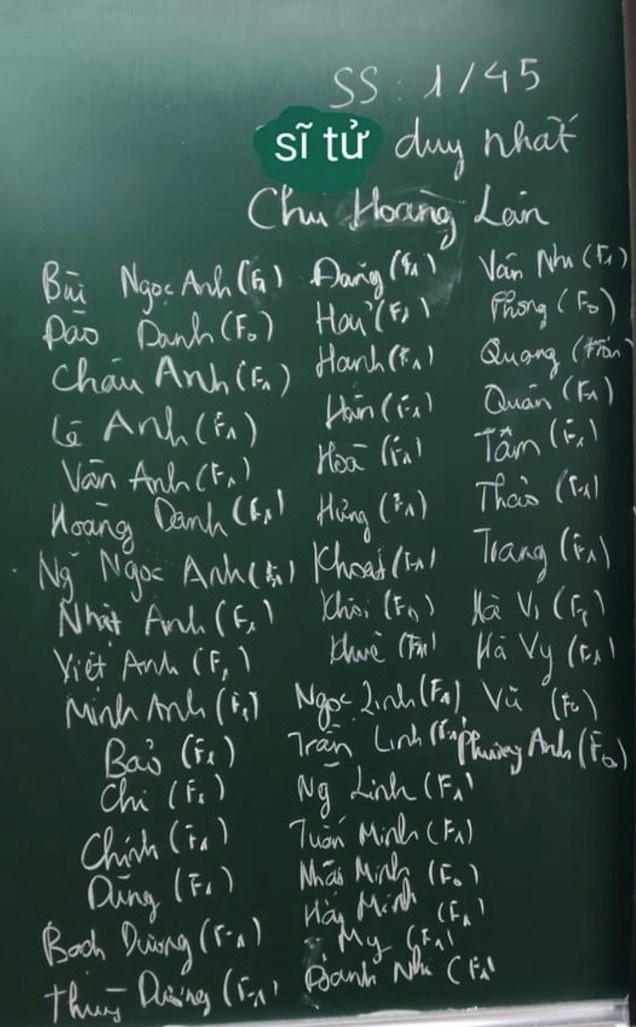 SS: 1/45
sĩ tử duy nhất
Chu Hoàng Lân
Bùi Ngọc Anh (F1)
Đào Danh (F0)
Châu Anh (F1)
Lê Anh (F1)
Vân Anh (F1)
Hoàng Danh (F1)
Ng Ngọc Anh (F1)
Nhật Anh (F1)
Việt Anh (F1)
Minh Anh (F1)
Bảo (F1)
Chi (F1)
Chính (F1)
Dũng (F1)
Bạch Dương (F1)
Thùy Dương (F1)
Đăng (F1)
(F1)
Hạnh (F1)
Hân (F1)
Hoà (F1)
Hưng (F1)
(F1)
Khôi (F0)
Khuê (F1)
Ngọc Linh (F1)
Trần Linh (F1)
Ng Linh (F1)
Tuấn Minh (F1)
Minh (F0)
Minh (F1)
My (F1)
Nhi (F1)
Vân Nhi (F1)
Phong (F0)
Quang (trốn)
Quân (F1)
Tâm (F1)
Thảo (F1)
Trang (F1)
Hà Vi (F1)
Hà Vy (F1)
Vũ (F0)
Phương Anh (F0)